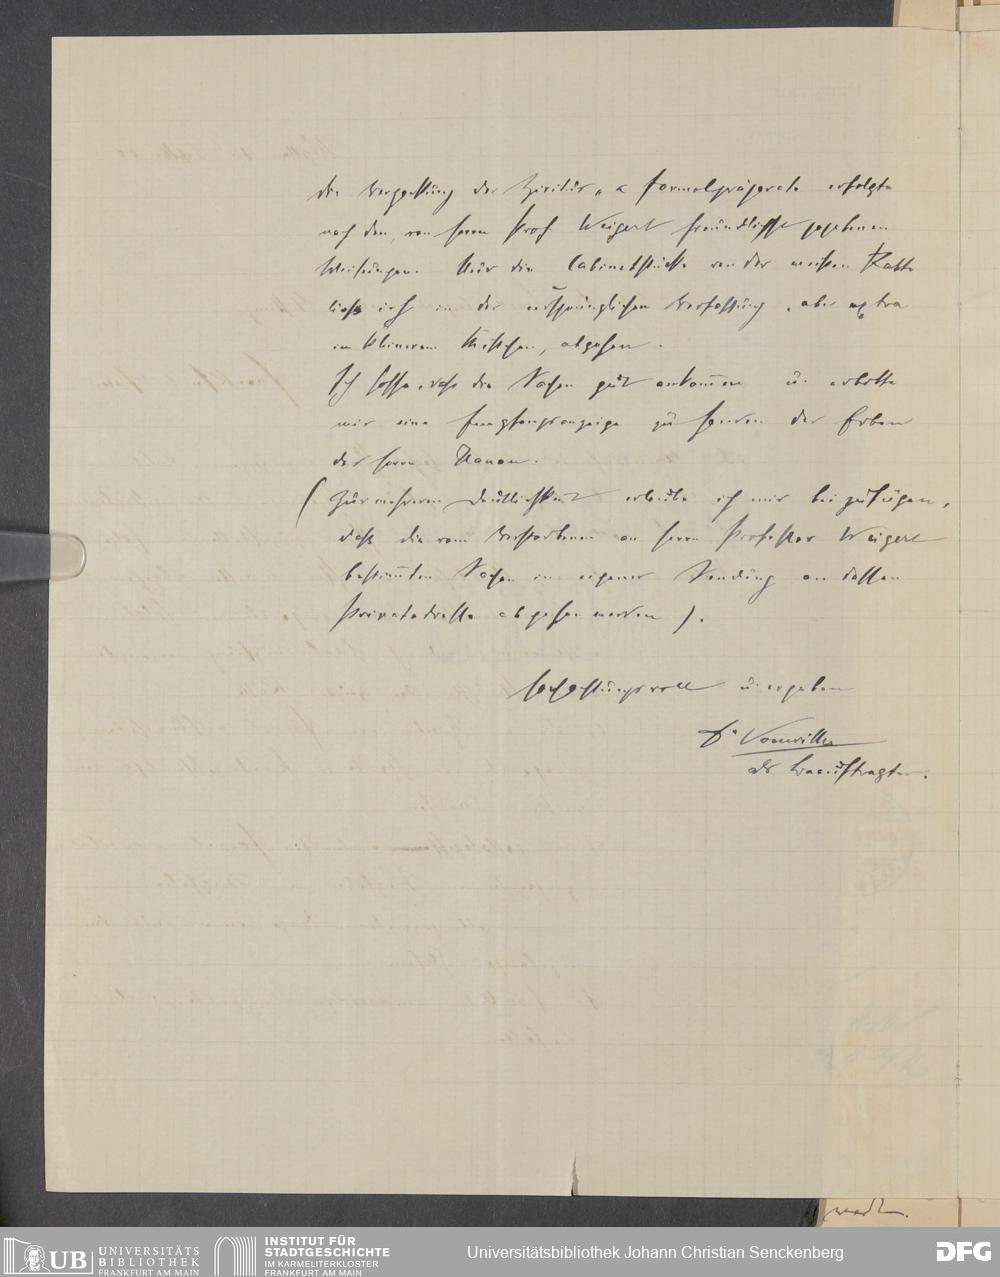 die Verpackung der Spiritus- & Formolpräparate erfolgte
nach den, von Herrn Prof. Weigert freundlichst gegebenen
Weisungen. Nur die Cabinetstücke von der weißen Ratte
ließ ich in der ursprünglichen Verfassung, aber extra
in kleinerem Kistchen, abgehen.
Ich hoffe, daß die Sachen gut ankommen u. erbitte
mir eine Empfangsanzeige zu Handen der Erben
des Herrn
(Zur mehreren Deutlichkeit erlaube ich mir beizufügen,
daß die vom Verstorbenen an Herrn Professor Weigert
bestimmten Sachen in eigener Sendung an dessen
Privatadresse abgehen werden).
Hochachtungsvoll u. ergeben
Dr Vonwiller
als Beauftragter.
UB UNIVERSITÄTS
BIBLIOTHEK
FRANKFURT AM MAIN
INSTITUT FÜR
STADTGESCHICHTE
IM KARMELITERKLOSTER
FRANKFURT AM MAIN
Universitätsbibliothek Johann Christian Senckenberg
DFG